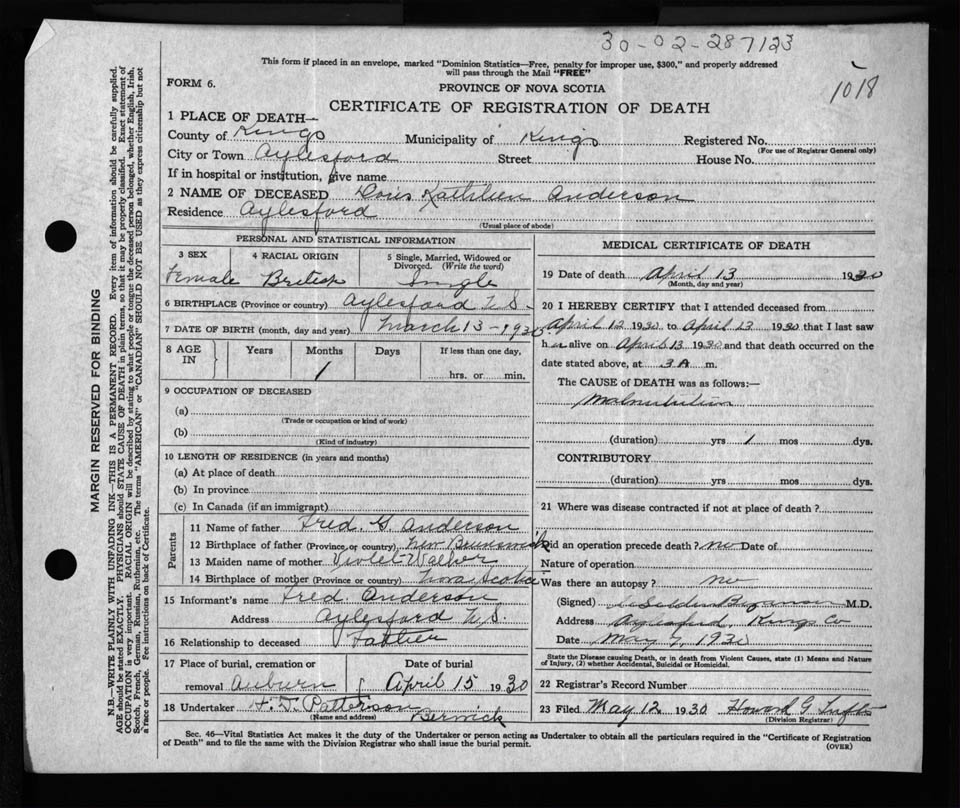 30-02-287123
1018
This form if placed in an envelope, marked "Dominion Statistics—Free, penalty for improper use, $300," and properly addressed
will pass through the Mail "FREE"
FORM 6.
PROVINCE OF NOVA SCOTIA
CERTIFICATE OF REGISTRATION OF DEATH
1 PLACE OF DEATH—
County of Kings Municipality of Kings Registered No.
(For use of Registrar General only)
City or Town Aylesford Street House No.
If in hospital or institution, give name
2 NAME OF DECEASED Doris Kathleen Anderson
Residence Aylesford
(Usual place of abode)
PERSONAL AND STATISTICAL INFORMATION
3 SEX 4 RACIAL ORIGIN 5 Single, Married, Widowed or
Divorced. (Write the word)
Female British Single
6 BIRTHPLACE (Province or country) Aylesford N.S.
7 DATE OF BIRTH (month, day and year) March 13-1930
8 AGE IN Years Months Days If less than one day,
1 hrs. or min.
9 OCCUPATION OF DECEASED
(a)
(Trade or occupation or kind of work)
(b)
(Kind of industry)
10 LENGTH OF RESIDENCE (in years and months)
(a) At place of death
(b) In province
(c) In Canada (if an immigrant)
Parents
11 Name of father Fred. G. Anderson
12 Birthplace of father (Province or country) New Brunswick
13 Maiden name of mother Violet Walker
14 Birthplace of mother (Province or country) Nova Scotia
15 Informant's name Fred Anderson
Address Aylesford N.S.
16 Relationship to deceased Father
17 Place of burial, cremation or Date of burial
removal Auburn April 15 1930
18 Undertaker Patterson
(Name and address) Berwick
MEDICAL CERTIFICATE OF DEATH
19 Date of death April 13 1930
(Month, day and year)
20 I HEREBY CERTIFY that I attended deceased from
April 12 1930 to April 13 1930 that I last saw
her alive on April 13 1930 and that death occurred on the
date stated above, at 3 A m.
The CAUSE OF DEATH was as follows:—
Malnutrition
(duration) yrs 1 mos dys.
CONTRIBUTORY
(duration) yrs mos dys.
21 Where was disease contracted if not at place of death?
Did an operation precede death? no Date of
Nature of operation
Was there an autopsy? no
(Signed) M.D.
Address Aylesford, Kings Co
Date May 1930
State the Disease causing Death, or in death from Violent Causes, state (1) Means and Nature
of Injury, (2) whether Accidental, Suicidal or Homicidal.
22 Registrar's Record Number
23 Filed May 12 1930 Howard G
(Division Registrar)
Sec. 46—Vital Statistics Act makes it the duty of the Undertaker or person acting as Undertaker to obtain all the particulars required in the "Certificate of Registration
of Death" and to file the same with the Division Registrar who shall issue the burial permit.
(OVER)
MARGIN RESERVED FOR BINDING
N.B.—WRITE PLAINLY WITH UNFADING INK—THIS IS A PERMANENT RECORD. Every item of information should be carefully supplied.
AGE should be stated EXACTLY. PHYSICIANS should STATE CAUSE OF DEATH in plain terms, so that it may be properly classified. Exact statement of
OCCUPATION is very important. RACIAL ORIGIN will be described by stating to what people or tongue the deceased person belonged, whether English, Irish,
Scotch, French, German, Russian, Ruthenian, etc. The terms "AMERICAN" or "CANADIAN" SHOULD NOT BE USED as they express citizenship but not
a race or people. See instructions on back of Certificate.